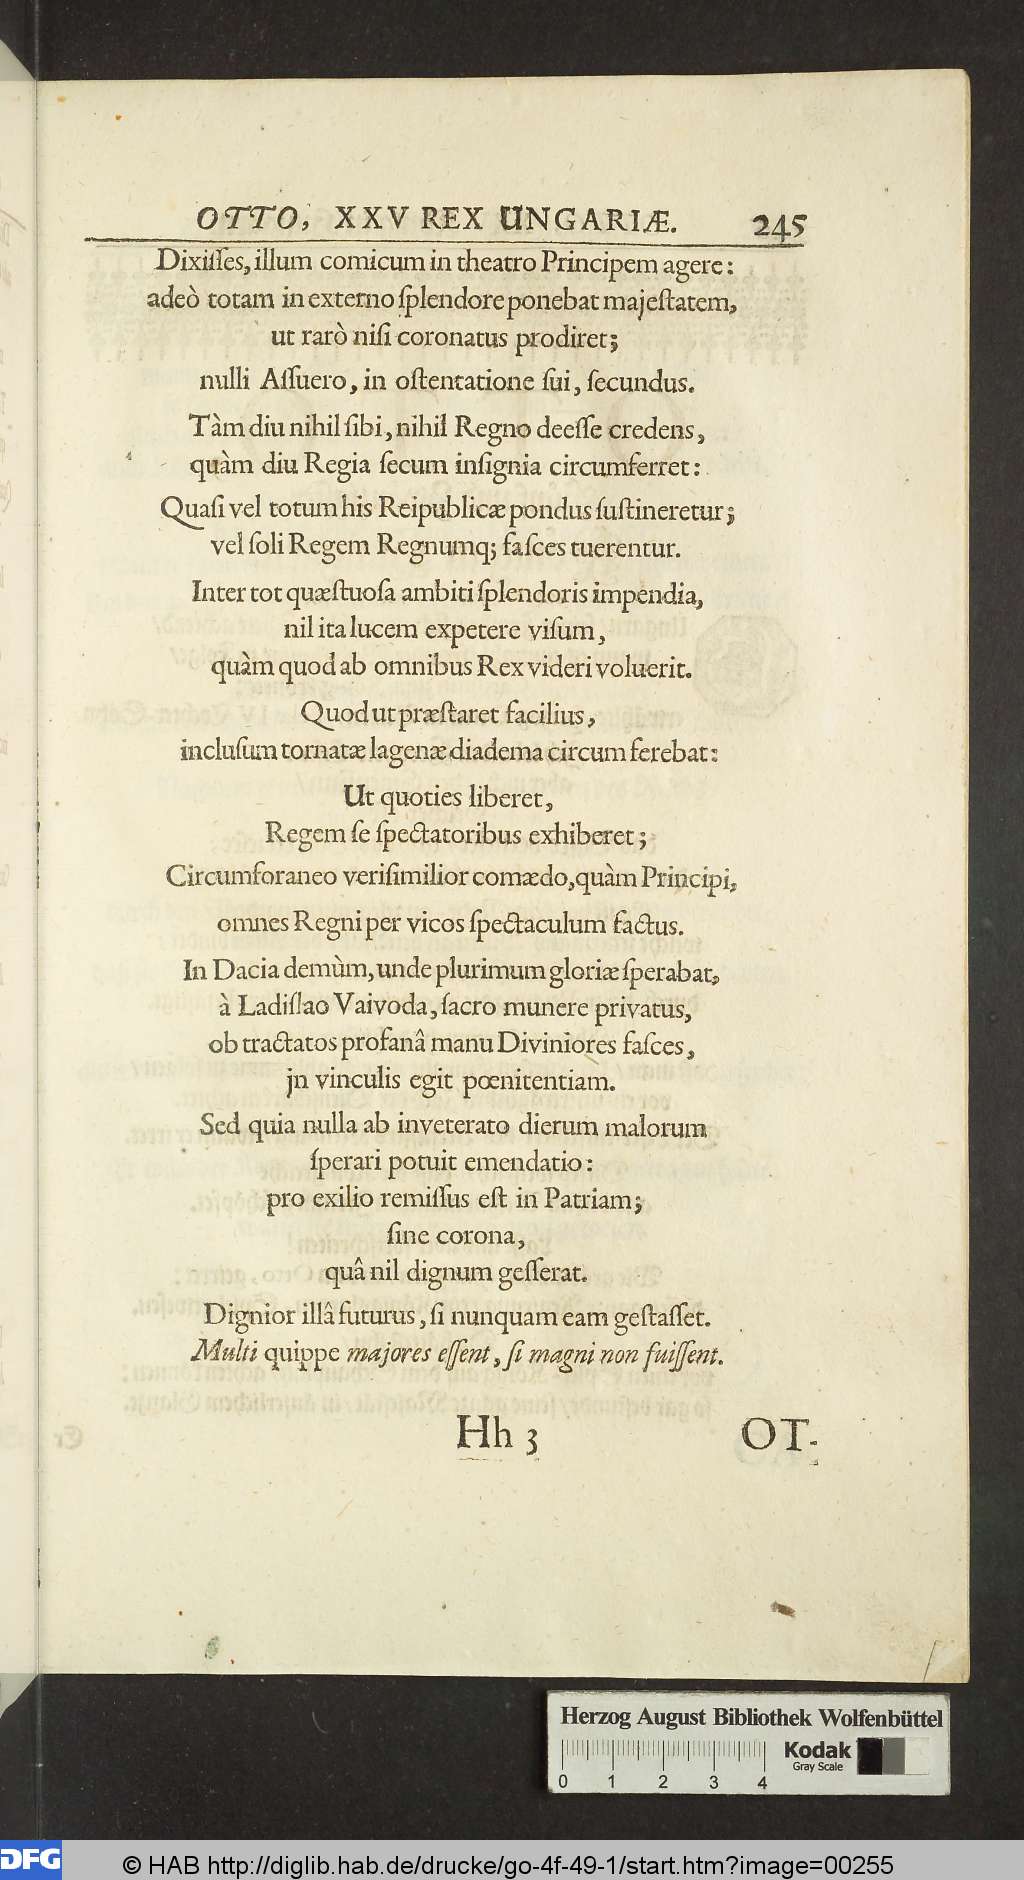 OTTO, XXV REX UNGARIÆ. 245
Dixiſſes, illum comicum in theatro Principem agere:
adeò totam in externo ſplendore ponebat majeſtatem,
ut rarò niſi coronatus prodiret;
nulli Aſſuero, in oſtentatione ſui, ſecundus.
Tàm diu nihil ſibi, nihil Regno deeſſe credens,
quàm diu Regia ſecum inſignia circumferret:
Quaſi vel totum his Reipublicæ pondus ſuſtineretur;
vel ſoli Regem Regnumq; faſces tuerentur.
Inter tot quæſtuoſa ambiti ſplendoris impendia,
nil ita lucem expetere viſum,
quàm quod ab omnibus Rex videri voluerit.
Quod ut præſtaret facilius,
incluſum tornatæ lagenæ diadema circum ferebat:
Ut quoties liberet,
Regem ſe ſpectatoribus exhiberet;
Circumforaneo veriſimilior comædo, quàm Principi,
omnes Regni per vicos ſpectaculum factus.
In Dacia demùm, unde plurimum gloriæ ſperabat,
à Ladiſlao Vaivoda, ſacro munere privatus,
ob tractatos profanâ manu Diviniores faſces,
jn vinculis egit pœnitentiam.
Sed quia nulla ab inveterato dierum malorum
ſperari potuit emendatio:
pro exilio remiſſus eſt in Patriam;
ſine corona,
quâ nil dignum geſſerat.
Dignior illâ futurus, ſi nunquam eam geſtaſſet.
Multi quippe majores eſſent, ſi magni non fuiſſent.
Hh 3 OT-
Herzog August Bibliothek Wolfenbüttel
Kodak
Gray Scale
0 1 2 3 4
DFG
© HAB http://diglib.hab.de/drucke/go-4f-49-1/start.htm?image=00255